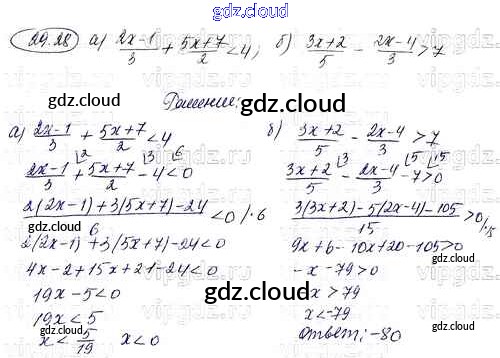 gdz.cloud
29.28 а) (2x-1)/3 + (5x+7)/2 < 4; б) (3x+2)/5 - (2x-4)/3 > 7
gdz.cloud
Решение:
gdz.cloud
а) (2x-1)/3 + (5x+7)/2 < 4
(2x-1)/3 + (5x+7)/2 - 4 < 0
(2(2x-1)+3(5x+7)-24)/6 < 0 /·6
2(2x-1)+3(5x+7)-24<0
4x-2+15x+21-24<0
19x-5<0
19x<5
x < 5/19 x<0
б) (3x+2)/5 - (2x-4)/3 > 7
(3x+2)/5 - (2x-4)/3 - 7 > 0
(3(3x+2)-5(2x-4)-105)/15 > 0 /·15
9x+6-10x+20-105>0
-x-79>0
x>79
x<-79
ответ: -80
gdz.cloud
gdz.cloud
gdz.cloud
gdz.cloud
gdz.cloud